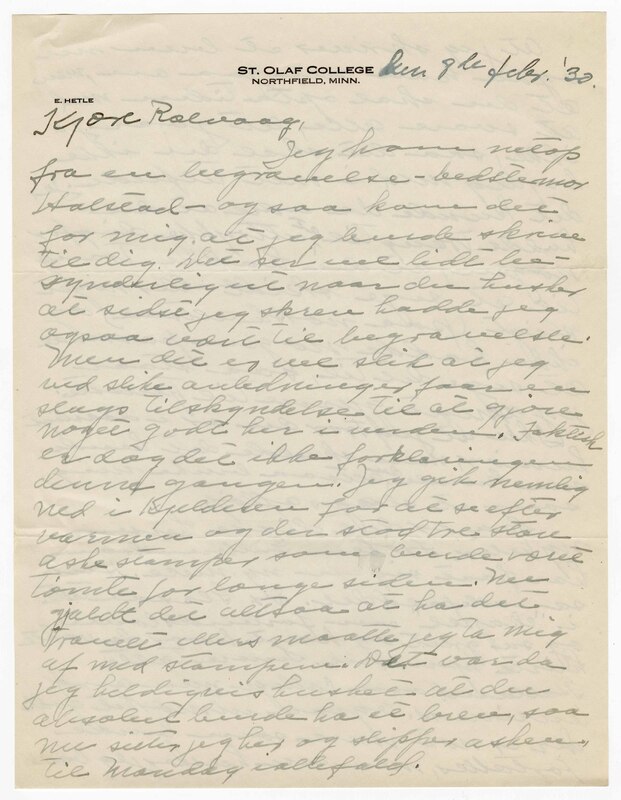 ST. OLAF COLLEGE den 9de febr. '30.
NORTHFIELD, MINN.
E. HETLE
Kjære Roelvaag,
Jeg kom netop
fra en begravelse - bedstemor
Halstad - og saa kom det
for mig at jeg burde skrive
til dig. Det ser vel lidt be-
synderlig ut naar du husker
at sidst jeg skrev hadde jeg
ogsaa vært til begravelse.
Men det er vel slik at jeg
ved slike anledninger faar en
slags tilskyndelse til at gjöre
noget godt her i verden. Faktisk
er dog det ikke forklaringen
denne gangen. Jeg gik nemlig
ned i kjelderen for at se efter
varmen og der stod tre store
aske stamper som burde været
tömte for længe siden. Nu
gjaldt det altsaa at ha det
travelt ellers maatte jeg ta mig
af med stampene. Det var da
jeg heldigvis husket at du
absolut burde ha et brev, saa
nu sitter jeg her og slipper asken,
til Mandag iallefald.